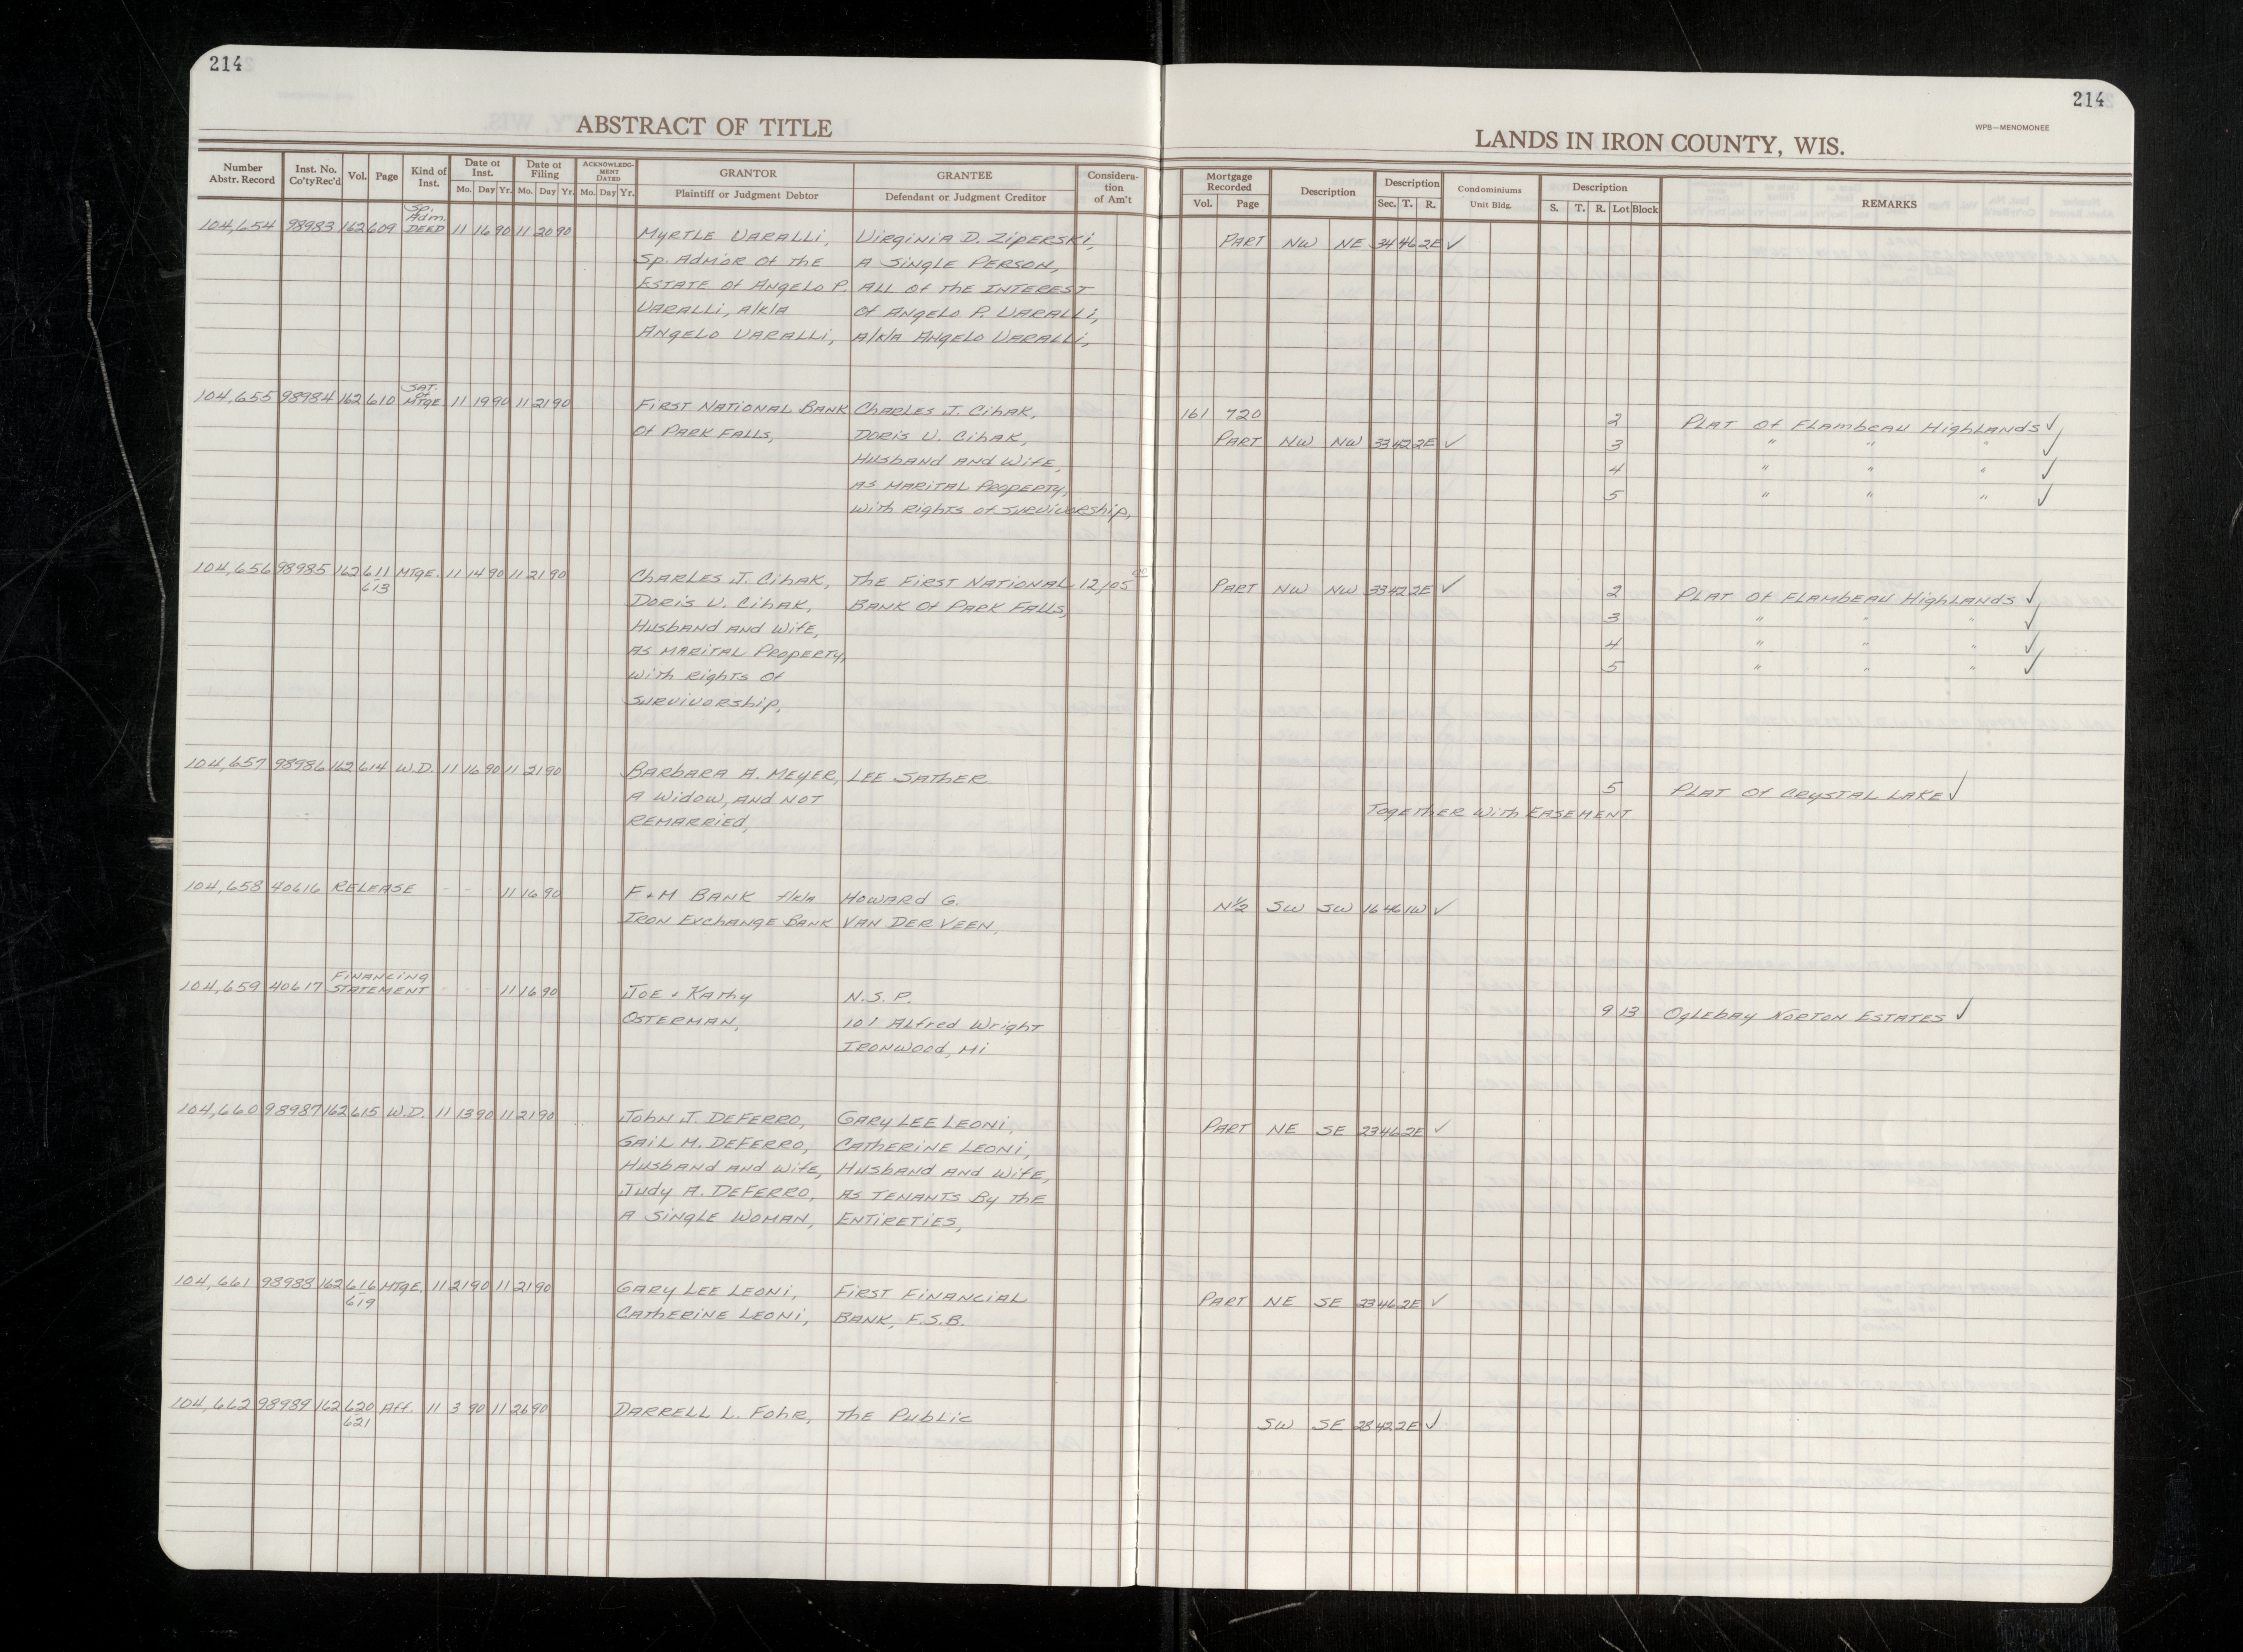 214
214
WPB—MENOMONEE
ABSTRACT OF TITLE
LANDS IN IRON COUNTY, WIS.
Number Abstr. Record
Inst. No. Co'ty Rec'd
Vol.
Page
Kind of Inst.
Date of Inst.
Mo. Day Yr.
Date of Filing
Mo. Day Yr.
ACKNOWLEDGMENT DATED
Mo. Day Yr.
GRANTOR
Plaintiff or Judgment Debtor
GRANTEE
Defendant or Judgment Creditor
Consideration of Am't
Mortgage Recorded
Vol. Page
Description
Description
Sec. T. R.
Condominiums
Unit Bldg.
Description
S. T. R. Lot Block
REMARKS
Sp. Adm.
104,654 98983 162 609 DEED 11 16 90 11 20 90 Myrtle Varalli, Virginia D. Ziperski, PART NW NE 34 46 2E ✓
Sp. Adm'or of the A Single Person,
Estate of Angelo P. All of the Interest
Varalli, a/k/a of Angelo P. Varalli,
Angelo Varalli, a/k/a Angelo Varalli,
SAT. of
104,655 98984 162 610 MTGE 11 19 90 11 21 90 First National Bank Charles J. Cihak, 161 720 2 Plat of Flambeau Highlands ✓
of Park Falls, Doris V. Cihak, PART NW NW 33 42 2E ✓ 3 " " " ✓
Husband and Wife, 4 " " " ✓
As Marital Property, 5 " " " ✓
With Rights of Survivorship,
104,656 98985 162 611 MTGE. 11 14 90 11 21 90 Charles J. Cihak, The First National 12,105 00 PART NW NW 33 42 2E ✓ 2 Plat of Flambeau Highlands ✓
613 Doris V. Cihak, Bank of Park Falls, 3 " " " ✓
Husband and Wife, 4 " " " ✓
As Marital Property, 5 " " " ✓
With Rights of
Survivorship,
104,657 98986 162 614 W.D. 11 16 90 11 21 90 Barbara A. Meyer, Lee Sather 5 Plat of Crystal Lake ✓
A Widow, and not Together with Easement
Remarried,
104,658 40616 RELEASE - - 11 16 90 F & M Bank f/k/a Howard G. N½ SW SW 16 46 1W ✓
Iron Exchange Bank Van Der Veen,
Financing
104,659 40617 Statement - - 11 16 90 Joe & Kathy N.S.P. 9 13 Oglebay Norton Estates ✓
Osterman, 101 Alfred Wright
Ironwood, Mi
104,660 98987 162 615 W.D. 11 13 90 11 21 90 John J. DeFerro, Gary Lee Leoni, PART NE SE 23 46 2E ✓
Gail M. DeFerro, Catherine Leoni,
Husband and Wife, Husband and Wife,
Judy A. DeFerro, As Tenants by the
A Single Woman, Entireties,
104,661 98988 162 616 MTGE. 11 21 90 11 21 90 Gary Lee Leoni, First Financial PART NE SE 23 46 2E ✓
619 Catherine Leoni, Bank, F.S.B.
104,662 98989 162 620 Aff. 11 3 90 11 26 90 Darrell L. Fohr, The Public SW SE 28 42 2E ✓
621